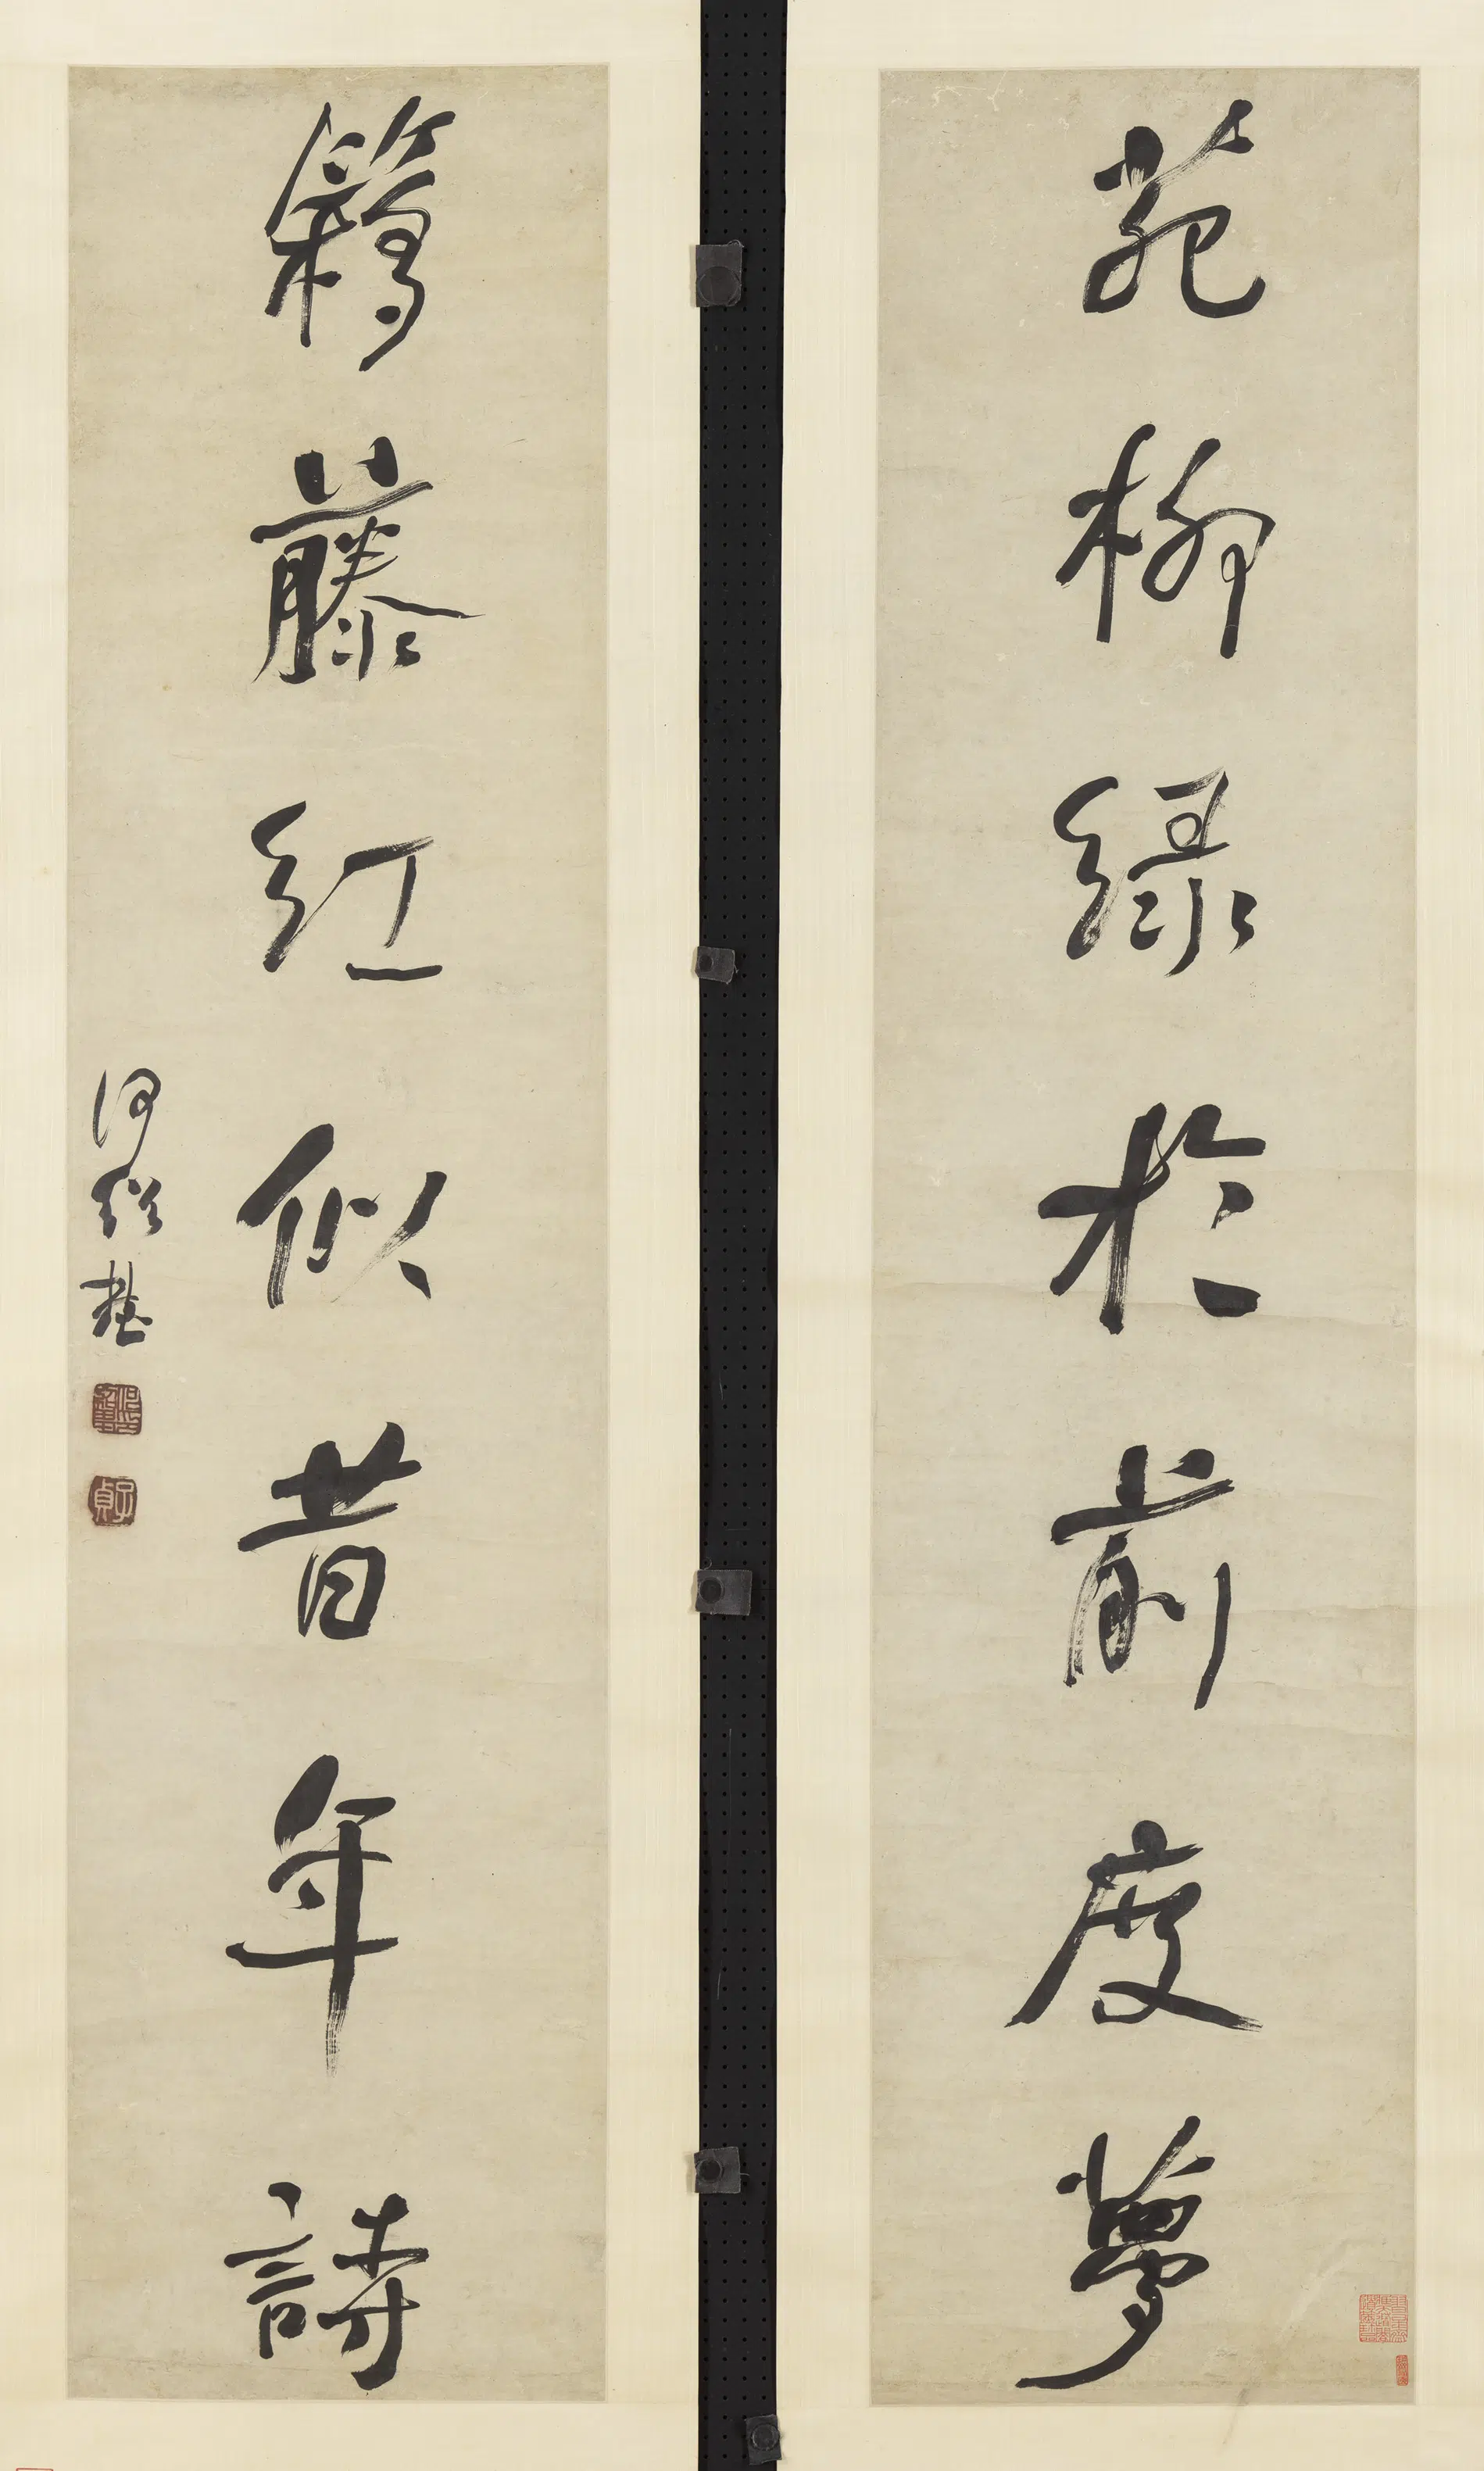 苑柳綠於前度夢
藤紅似昔年詩
何紹基
子貞